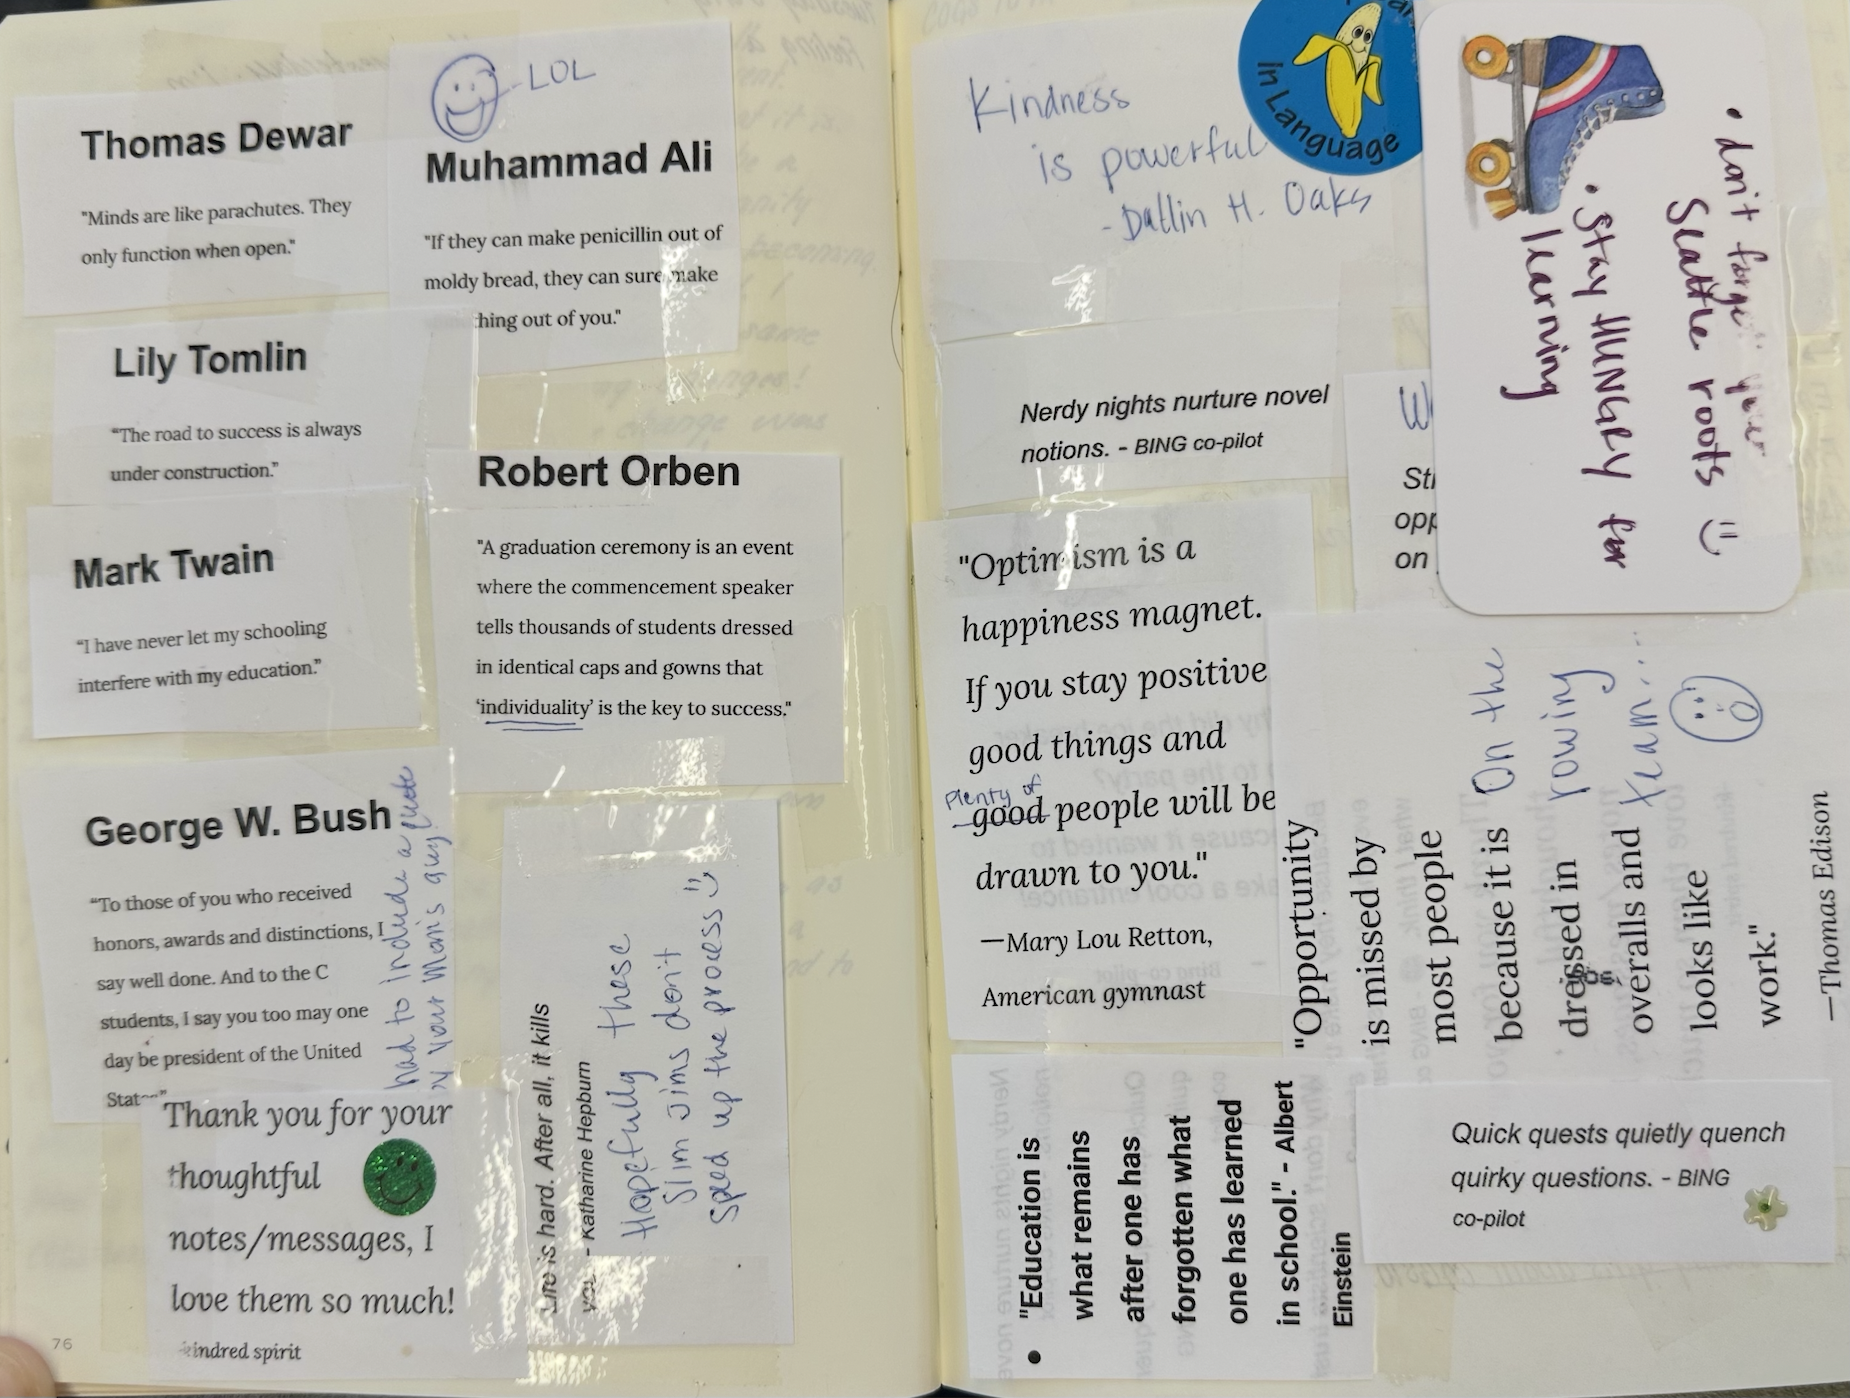 Thomas Dewar
"Minds are like parachutes. They
only function when open."
LOL
Muhammad Ali
"If they can make penicillin out of
moldy bread, they can sure make
hing out of you."
Lily Tomlin
"The road to success is always
under construction."
Robert Orben
"A graduation ceremony is an event
where the commencement speaker
tells thousands of students dressed
in identical caps and gowns that
'individuality' is the key to success."
Mark Twain
"I have never let my schooling
interfere with my education."
George W. Bush
"To those of you who received
honors, awards and distinctions, I
say well done. And to the C
students, I say you too may one
day be president of the United
had to include a quote
your man's guy
Thank you for your
thoughtful
notes/messages, I
love them so much!
kindred spirit
Life is hard. After all, it kills
you. - Katharine Hepburn
Hopefully these
Slim Jims don't
speed up the process
76
Kindness
is powerful
-Dallin H. Oaks
in Language
• don't forget your
Seattle roots
• Stay HUNGRY for
learning
Nerdy nights nurture novel
notions. - BING co-pilot
opp
on
"Optimism is a
happiness magnet.
If you stay positive
good things and
Plenty of
good people will be
drawn to you."
—Mary Lou Retton,
American gymnast
"Opportunity
is missed by
most people
because it is
dressed in
overalls and
looks like
work."
—Thomas Edison
On the
rowing
team...
• "Education is
what remains
after one has
forgotten what
one has learned
in school." - Albert
Einstein
Quick quests quietly quench
quirky questions. - BING
co-pilot